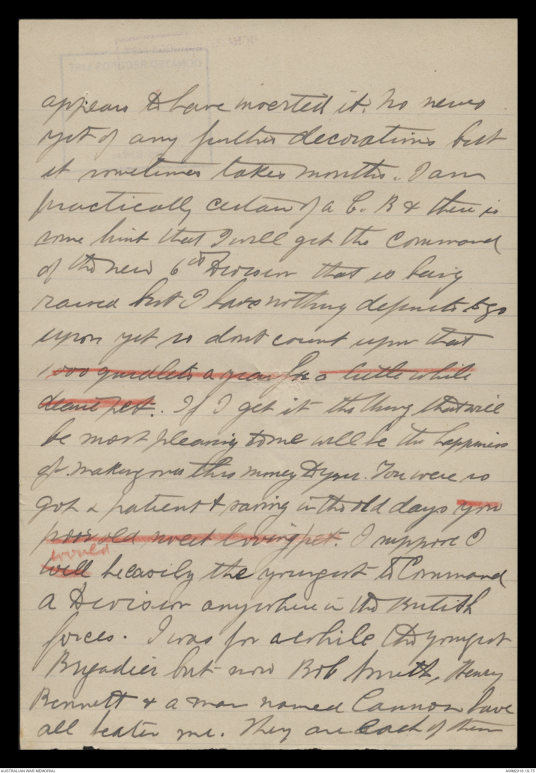 appears to have inserted it. No news
yet of any further decorations but
it sometimes takes months. I am
practically certain of a C. B & there is
some hint that I will get the Command
of the new 6th Division that is being
raised but I have nothing definite to go
upon yet so dont count upon that
1000 quidlets a year for a little while
dearie pet. If I get it the thing that will
be most pleasing to me will be the happiness
of making over this money to you. You were so
good & patient & saving in the old days you
poor old sweet loving pet. I suppose I
would
will be easily the youngest to Command
a Division anywhere in the British
forces. I was for awhile the youngest
Brigadier but now Bob Smith, Henry
Bennett & a man named Cannon have
all beaten me. They are each of them
AUSTRALIAN WAR MEMORIAL